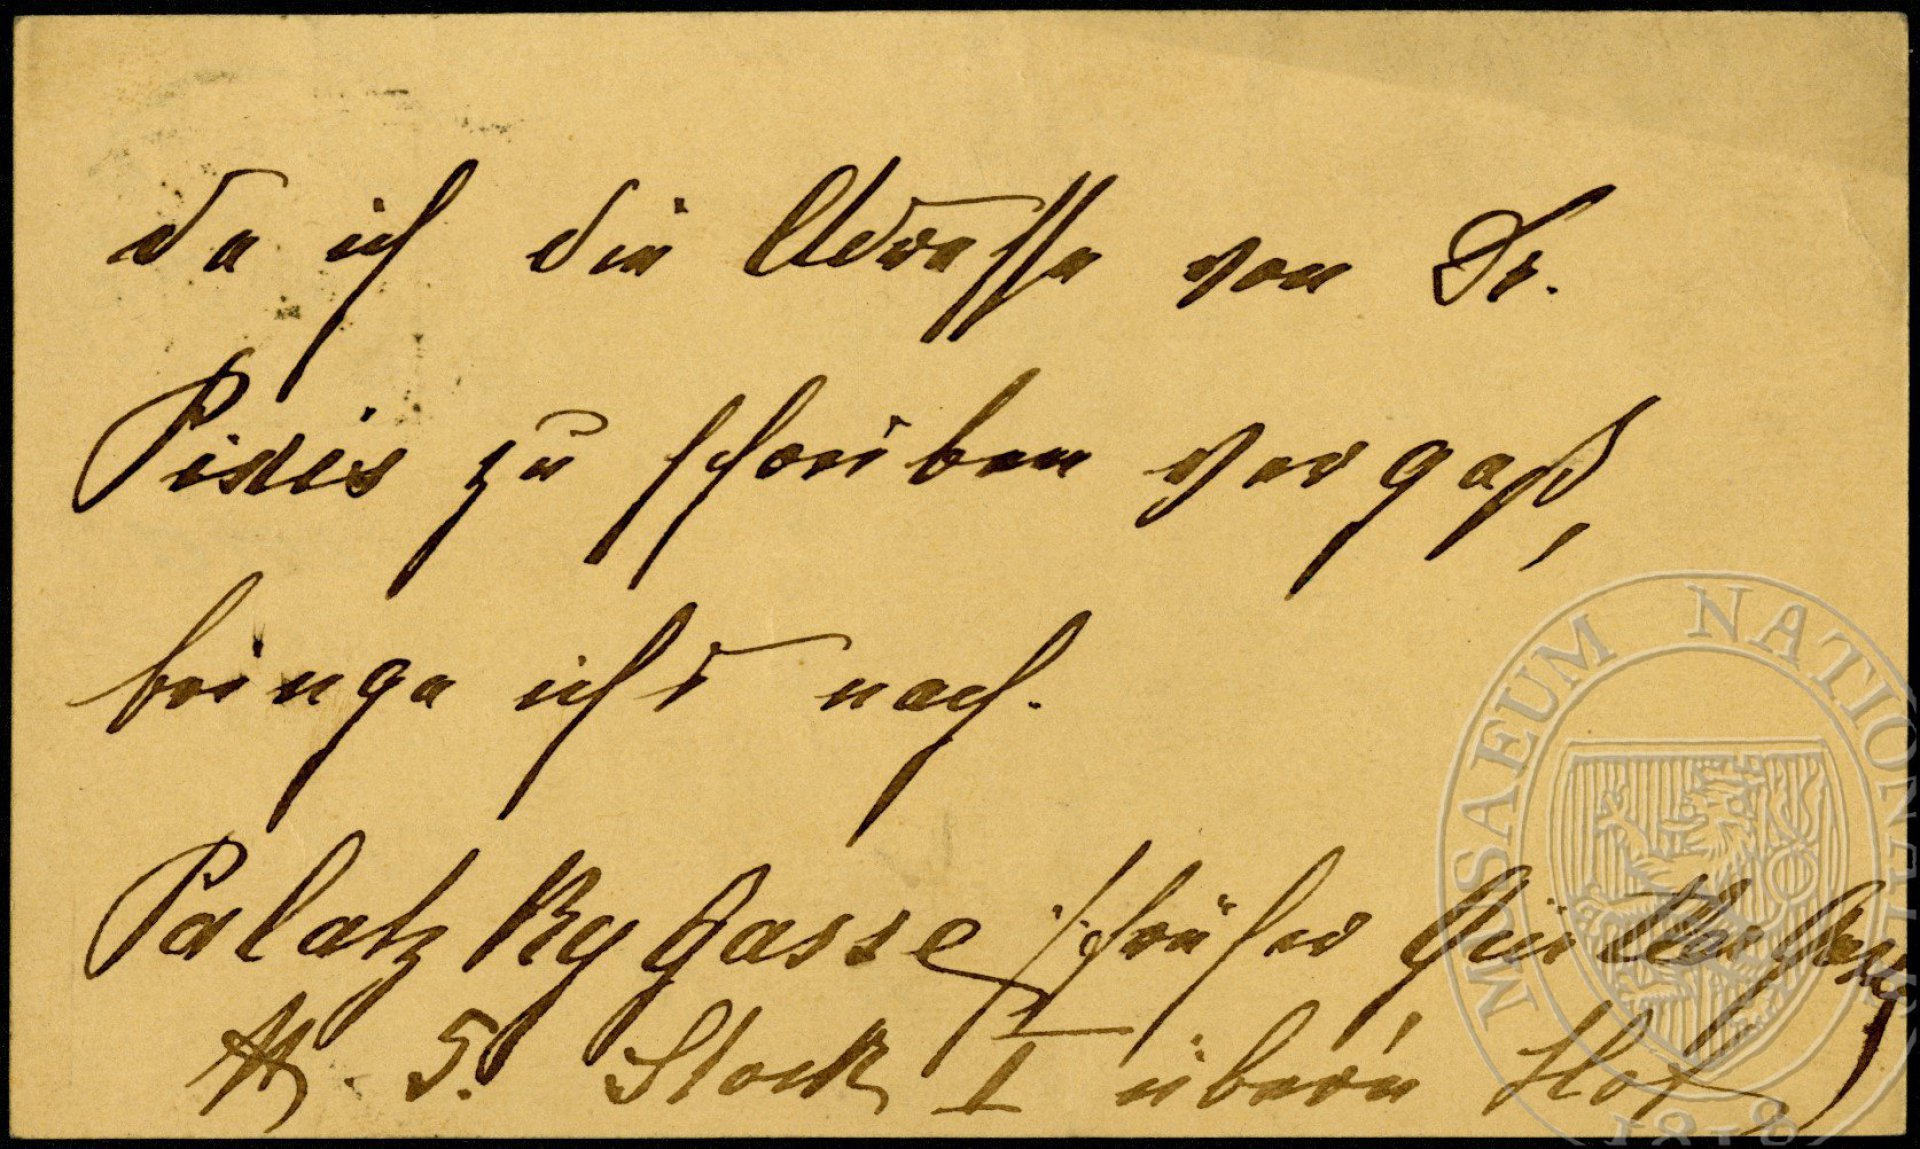 da ich die Adresse von Dr.
Pisdis zu schreiben vergaß,
bringe ich's nach.
Palatzkygasse /: früher Gürtlergasse
N. 5. Stock I über'n Hof
MUSAEUM NATIONALE
1818